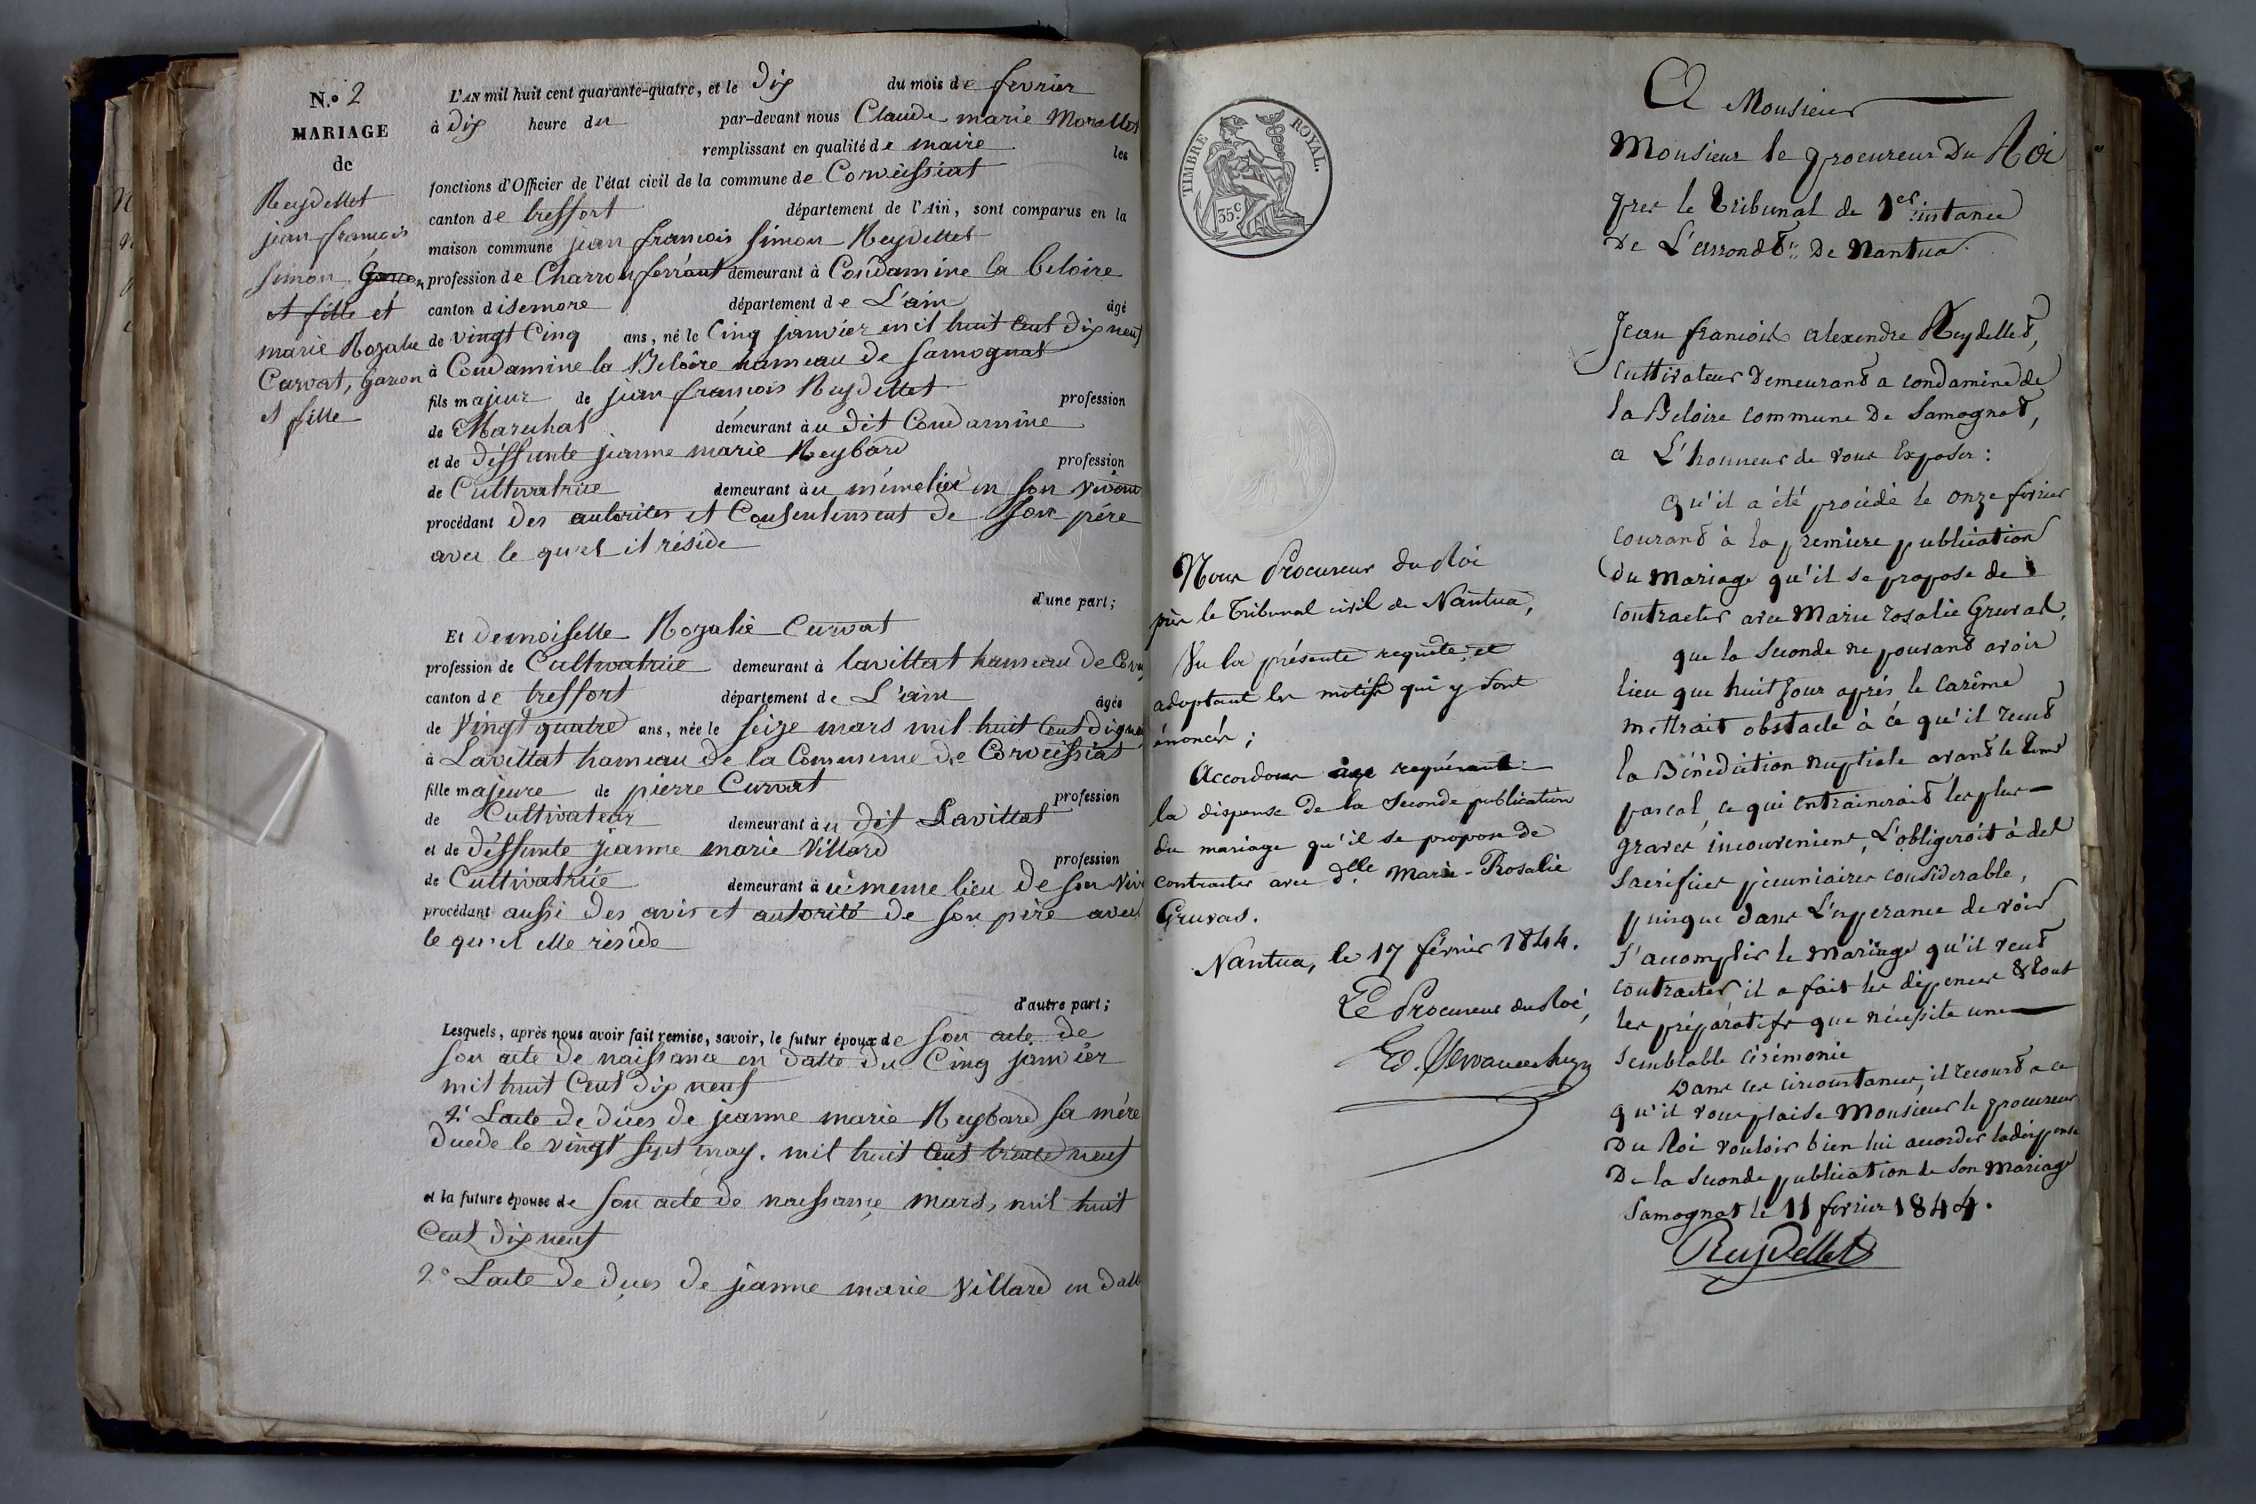 N.º 2
MARIAGE
de
Reydellet
jean françois
simon Garçon
et fille et
marie Rozalie
Curvat, Garçon
et fille
L'AN mil huit cent quarante-quatre, et le Dix du mois de fevrier
à dix heure du par-devant nous Claude marie Morallet
remplissant en qualité de maire les
fonctions d'Officier de l'état civil de la commune de Corveissiat
canton de treffort département de l'Ain, sont comparus en la
maison commune jean françois simon Reydellet
profession de Charron ferrant demeurant à Condamine la beloire
canton disernore département de L'ain âgé
de vingt Cinq ans, né le Cinq janvier mil huit Cent dix neuf
à Condamine la Beloire hameau de Samognat
fils majeur de jean françois Reydellet profession
de Marechal demeurant àu dit Condamine
et de déffunte jeanne marie Reybard profession
de Cultivatrice demeurant àu même lieu en son vivant
procédant des autorites et Consentement de son père
avec le quel il réside
d'une part;
Et demoiselle Rozalie Curvat
profession de Cultivatrice demeurant à lavillat hameau de Corv
canton de treffort département de L'ain âgée
de Vingt quatre ans, née le seize mars mil huit Cent dix neu
à Lavillat hameau de la Commune de Corveissiat
fille majeure de pierre Curvat profession
de Cultivateur demeurant àu dit Lavillat
et de déffunte jeanne marie Villard profession
de Cultivatrice demeurant àu meme lieu de son viv
procédant aussi des avis et autorité de son père avec
le quel elle réside
d'autre part;
Lesquels, après nous avoir fait remise, savoir, le futur époux de son acte de
son acte de naissance en datte du Cinq janvier
mil huit Cent dix neuf
2º Lacte de dèces de jeanne marie Reybard sa mère
décédé le vingt sept may. mil huit Cent trente neuf
et la future épouse de son acte de naissance mars, mil huit
Cent dix neuf
2º Lacte de dèces de jeanne marie Villard en datt
TIMBRE ROYAL.
35 c
Nous Procureur du Roi
près le Tribunal civil de Nantua,
Vu la présente requête, et
adoptant les motifs qui y sont
énoncés;
Accordons au requérant
la dispense de la seconde publication
du mariage qu'il se propose de
contracter avec dlle Marie-Rosalie
Gruvat.
Nantua, le 17 février 1844.
Le Procureur du Roi,
A Monsieur
Monsieur le procureur Du Roi
pres le tribunal de 1er instance
De L'arrondt De Nantua.
Jean francois alexendre Reydellet,
Cultivateur Demeurant a condamine de
la Beloire commune De Samognat,
a L'honneur de vous Exposer:
qu'il a été procédé le onze fevrier
courant à la premiere publication
Du mariage qu'il se propose de
contracter avec Marie rosalie Gruvat,
que la seconde ne pouvant avoir
lieu que huit jour après le carême
mettrait obstacle à ce qu'il recut
la Bénédiction nuptiale avant le tems
pascal, ce qui entrainerait les plus
graves inconvenient, L'obligeroit à des
sacrifices pécuniaires considerable,
puisque dans L'esperance de voir
s'accomplir le mariage qu'il veut
contracter, il a fait les dépences & tout
les préparatifs que nécessite une
semblable cérémonie
Dans ces circonstances, il recourt a ce
qu'il vous plaise Monsieur le procureur
Du Roi vouloir bien lui accorder la dispense
De la seconde publication de son mariage
Samognat le 11 fevrier 1844.
Reydellet